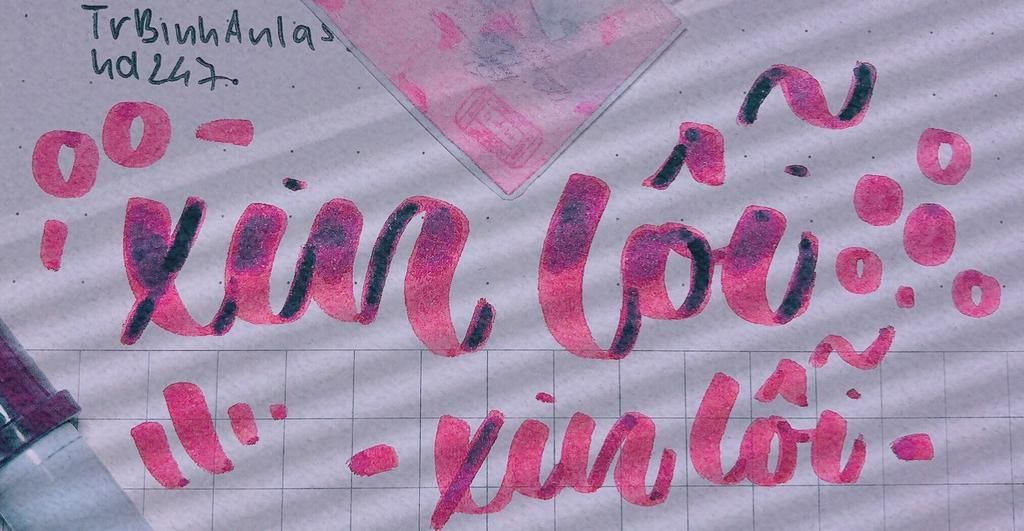 TrBinhAnlas
hd247.
xin lỗi
- xin lỗi -